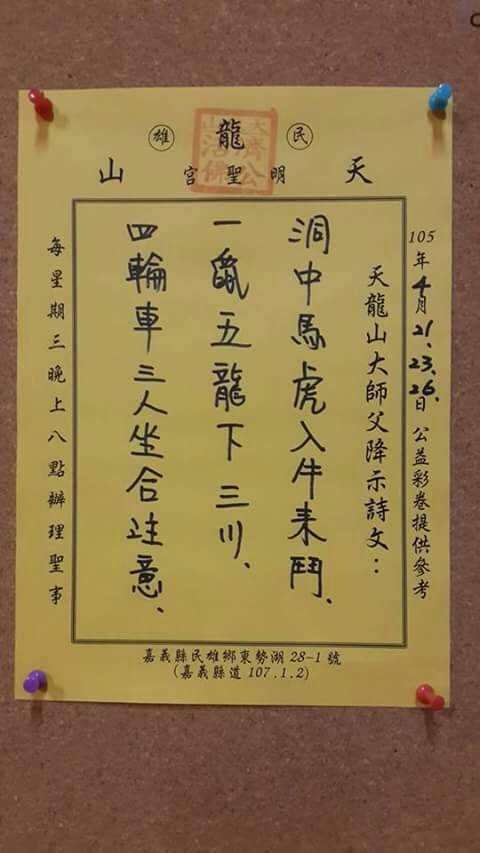 民雄
天龍山
明聖宮
大濟公
山活佛
105年4月21.23.26.日 公益彩卷提供參考
天龍山大師父降示詩文：
洞中馬虎入牛來鬥、
一鼠五龍下三川、
四輪車三人坐合注意、
每星期三晚上八點辦理聖事
嘉義縣民雄鄉東勢湖28-1號
(嘉義縣道107.1.2)